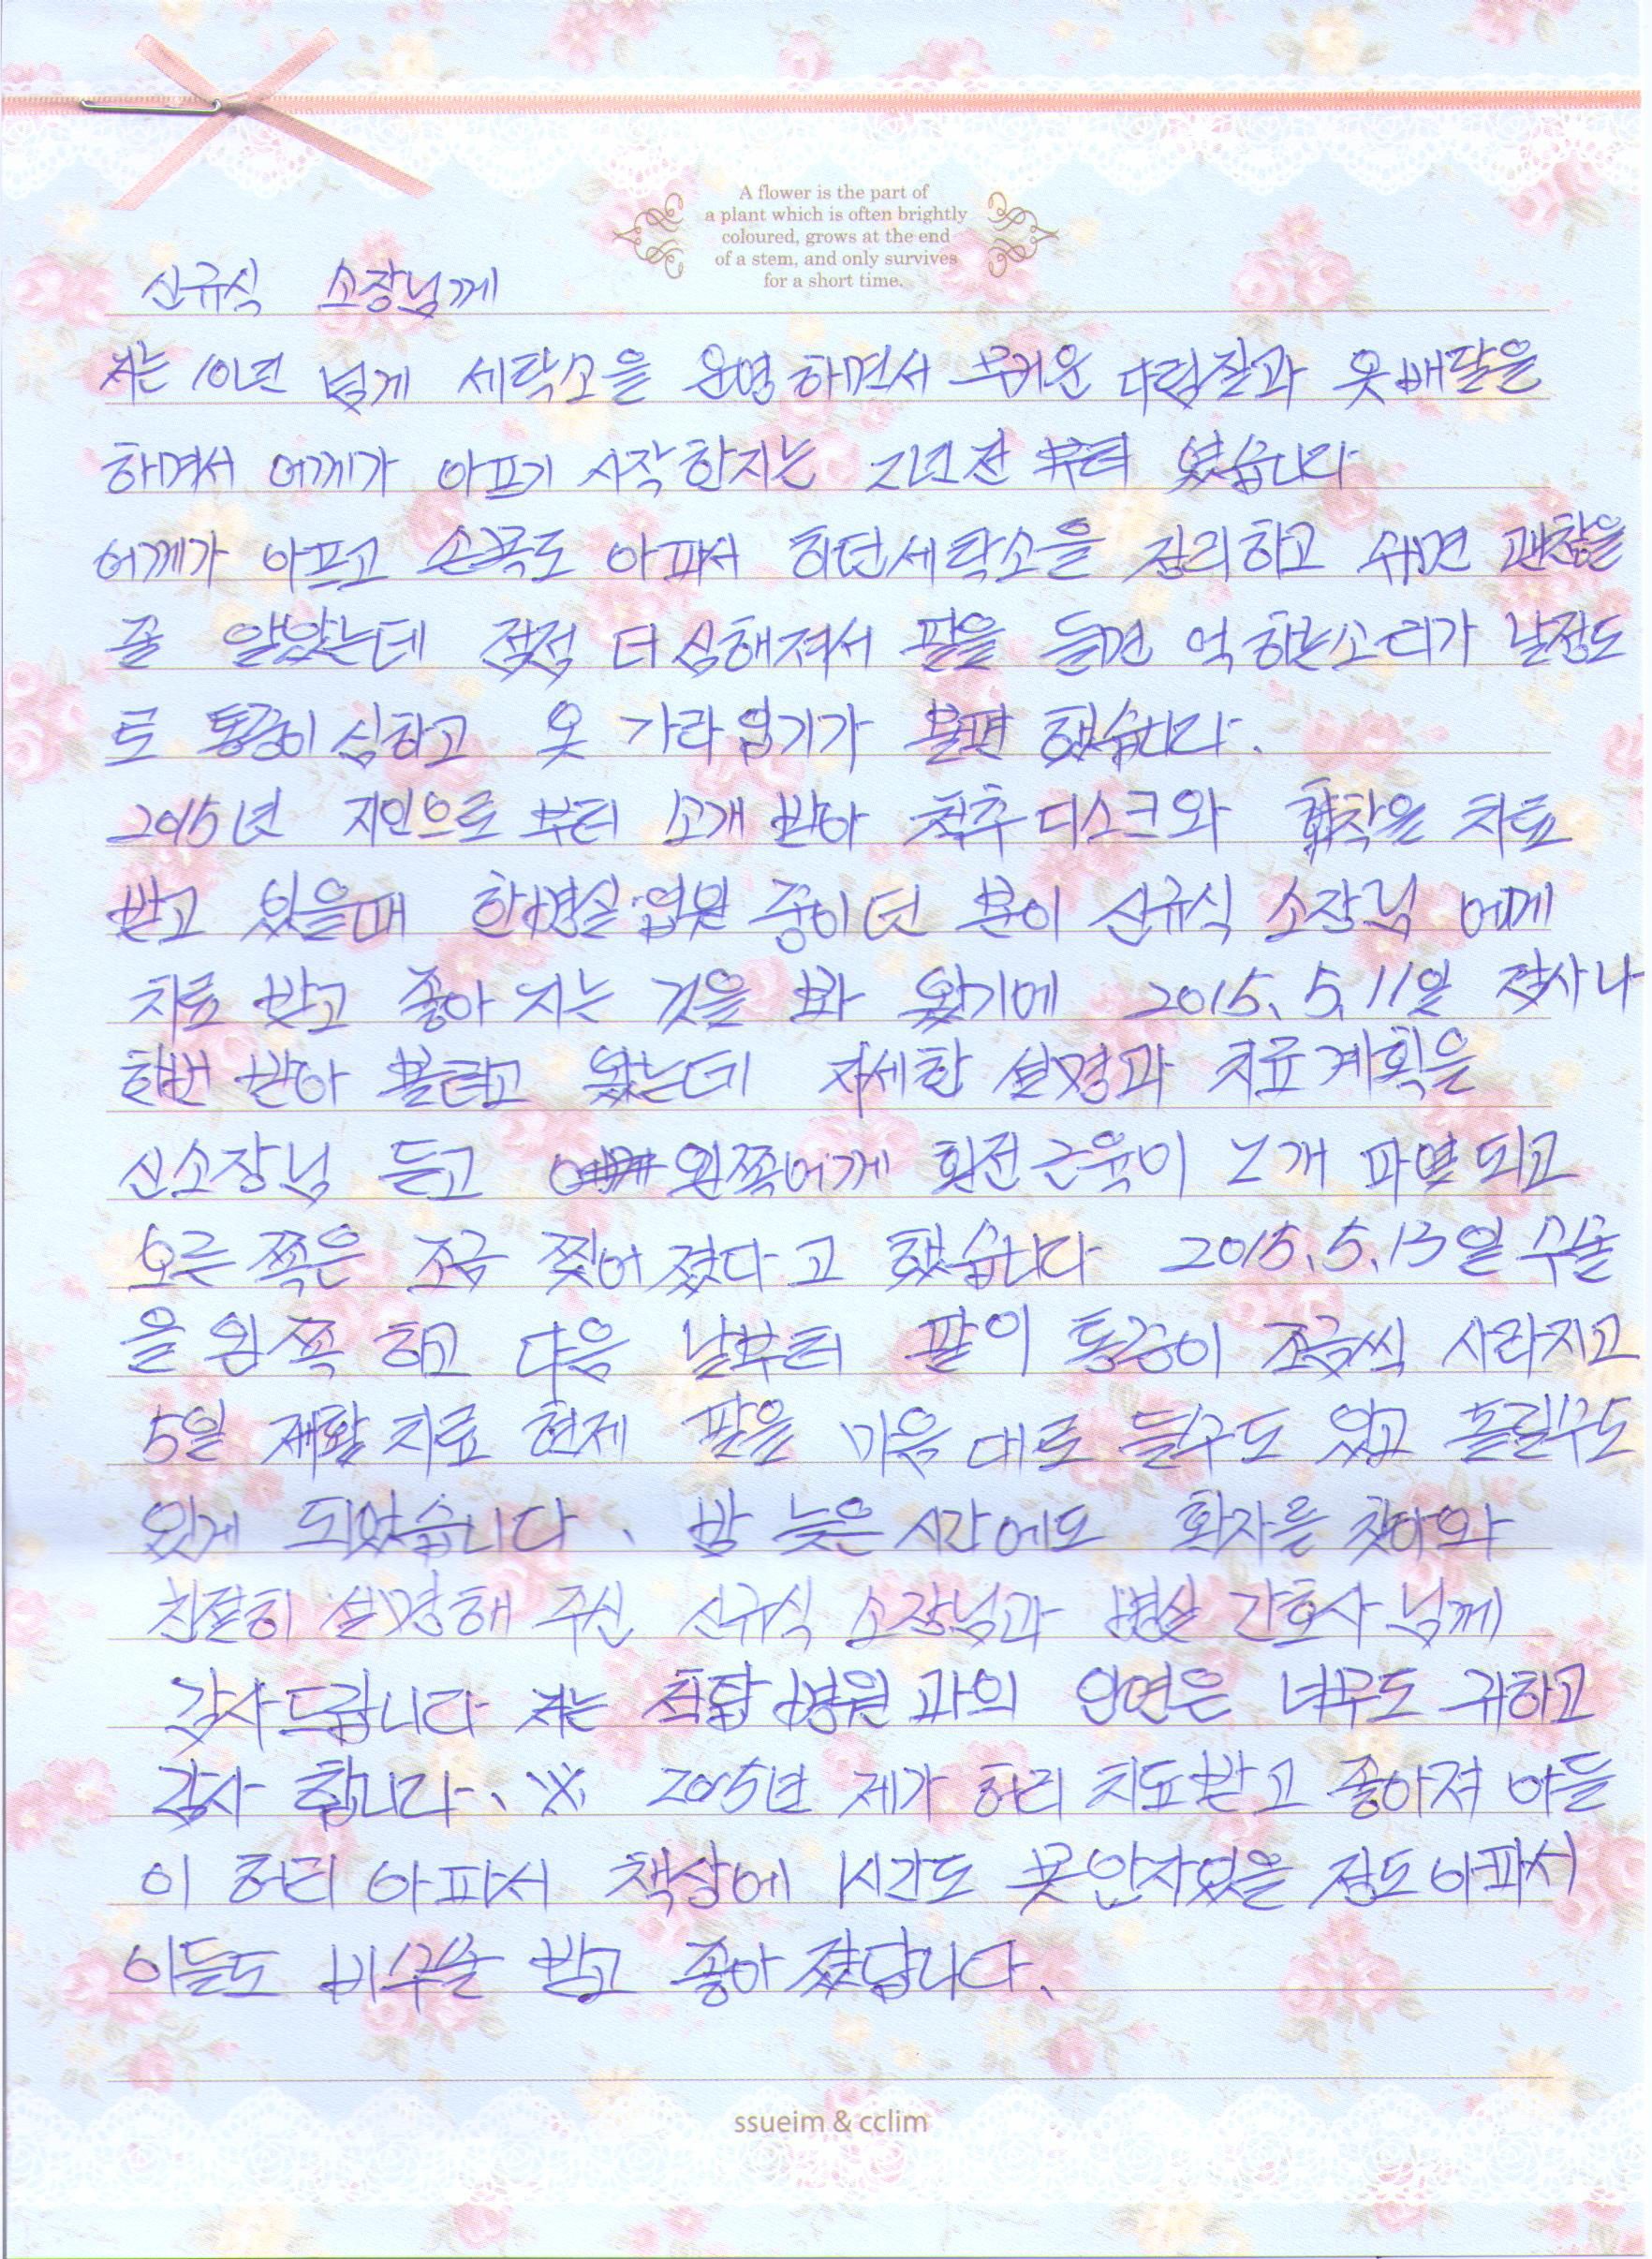 A flower is the part of
a plant which is often brightly
coloured, grows at the end
of a stem, and only survives
for a short time.
신규식 소장님께
저는 10년 넘게 세탁소을 운영하면서 무거운 다림질과 옷배달을
하며서 어깨가 아프기 시작한지는 2년전 부터 였습니다
어깨가 아프고 손목도 아파서 하던세탁소을 정리하고 쉬면 괜찮을
줄 알았는데 점점 더 심해져서 팔을 들면 억 하는소리가 날정도
로 통증이 심하고 옷 가라입기가 불편 했습니다.
2015년 지인으로 부터 소개 받아 척추디스크와 협착을 치료
받고 있을때 한병실 입원 중이던 분이 신규식 소장님 에게
치료 받고 좋아 지는 것을 봐 왔기에 2015. 5. 11일 검사나
한번 받아 볼라고 왔는데 자세한 설명과 치료계획을
신소장님 듣고 왼쪽어깨 회전근육이 2개 파열되고
오른쪽은 조금 찢어 졌다고 했습니다 2015. 5. 13일 수술
을 왼쪽 하고 다음 날부터 팔이 통증이 조금씩 사라지고
5일 재활치료 현제 팔을 마음 대로 들수도 있고 돌릴수도
있게 되었습니다. 밤 늦은 시간에도 환자를 찾아와
친절히 설명해 주신 신규식 소장님과 병실 간호사님께
감사드립니다 저는 척탑병원과의 인연은 너무도 귀하고
감사 합니다. ※ 2005년 제가 허리 치료받고 좋아져 아들
이 허리 아파서 책상에 1시간도 못안자있을 정도 아파서
아들도 비수술 받고 좋아 졌답니다.
ssueim & cclim